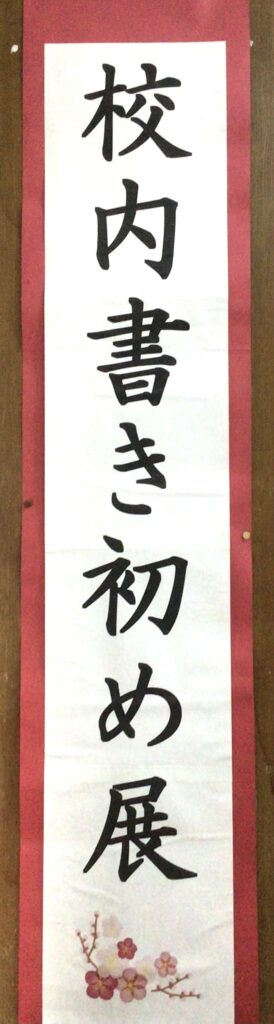 校内書き初め展